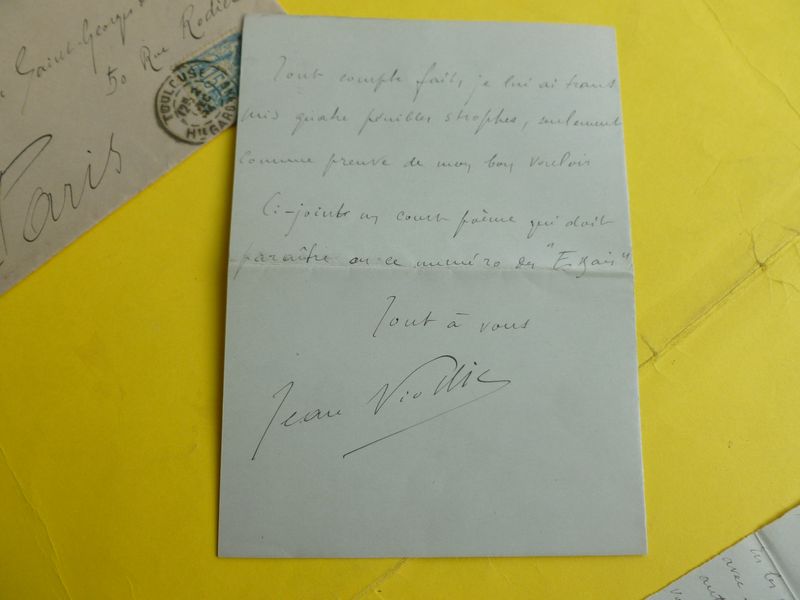 Saint-Georges de
50 Rue Rodier
TOULOUSE
Hte GARONNE
Paris
Tout compte fait, je lui ai trans
mis quatre pénibles strophes, seulement
comme preuve de mon bon vouloir
Ci-joint un court poème qui doit
paraître en ce numéro des "Essais",
Tout à vous
Jean Viollis
avec